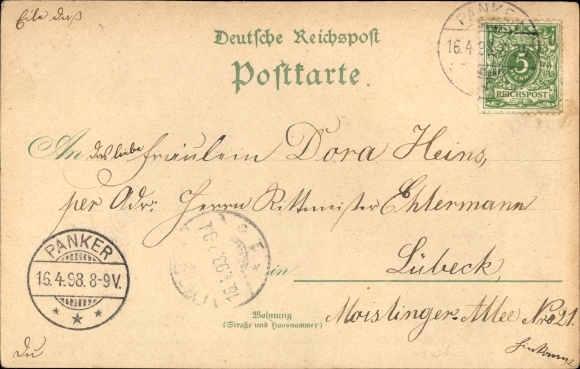 Eile daß
Deutsche Reichspost
Postkarte
PANKER
16.4.98.
5
REICHSPOST
An das liebe Fräulein Dora Heins,
per Adr: Herrn Rittmeister Ehtermann
PANKER
16.4.98.8-9V.
in Lübeck,
Wohnung
(Straße und Hausnummer)
Moislinger-Allee Nro 21.
Du